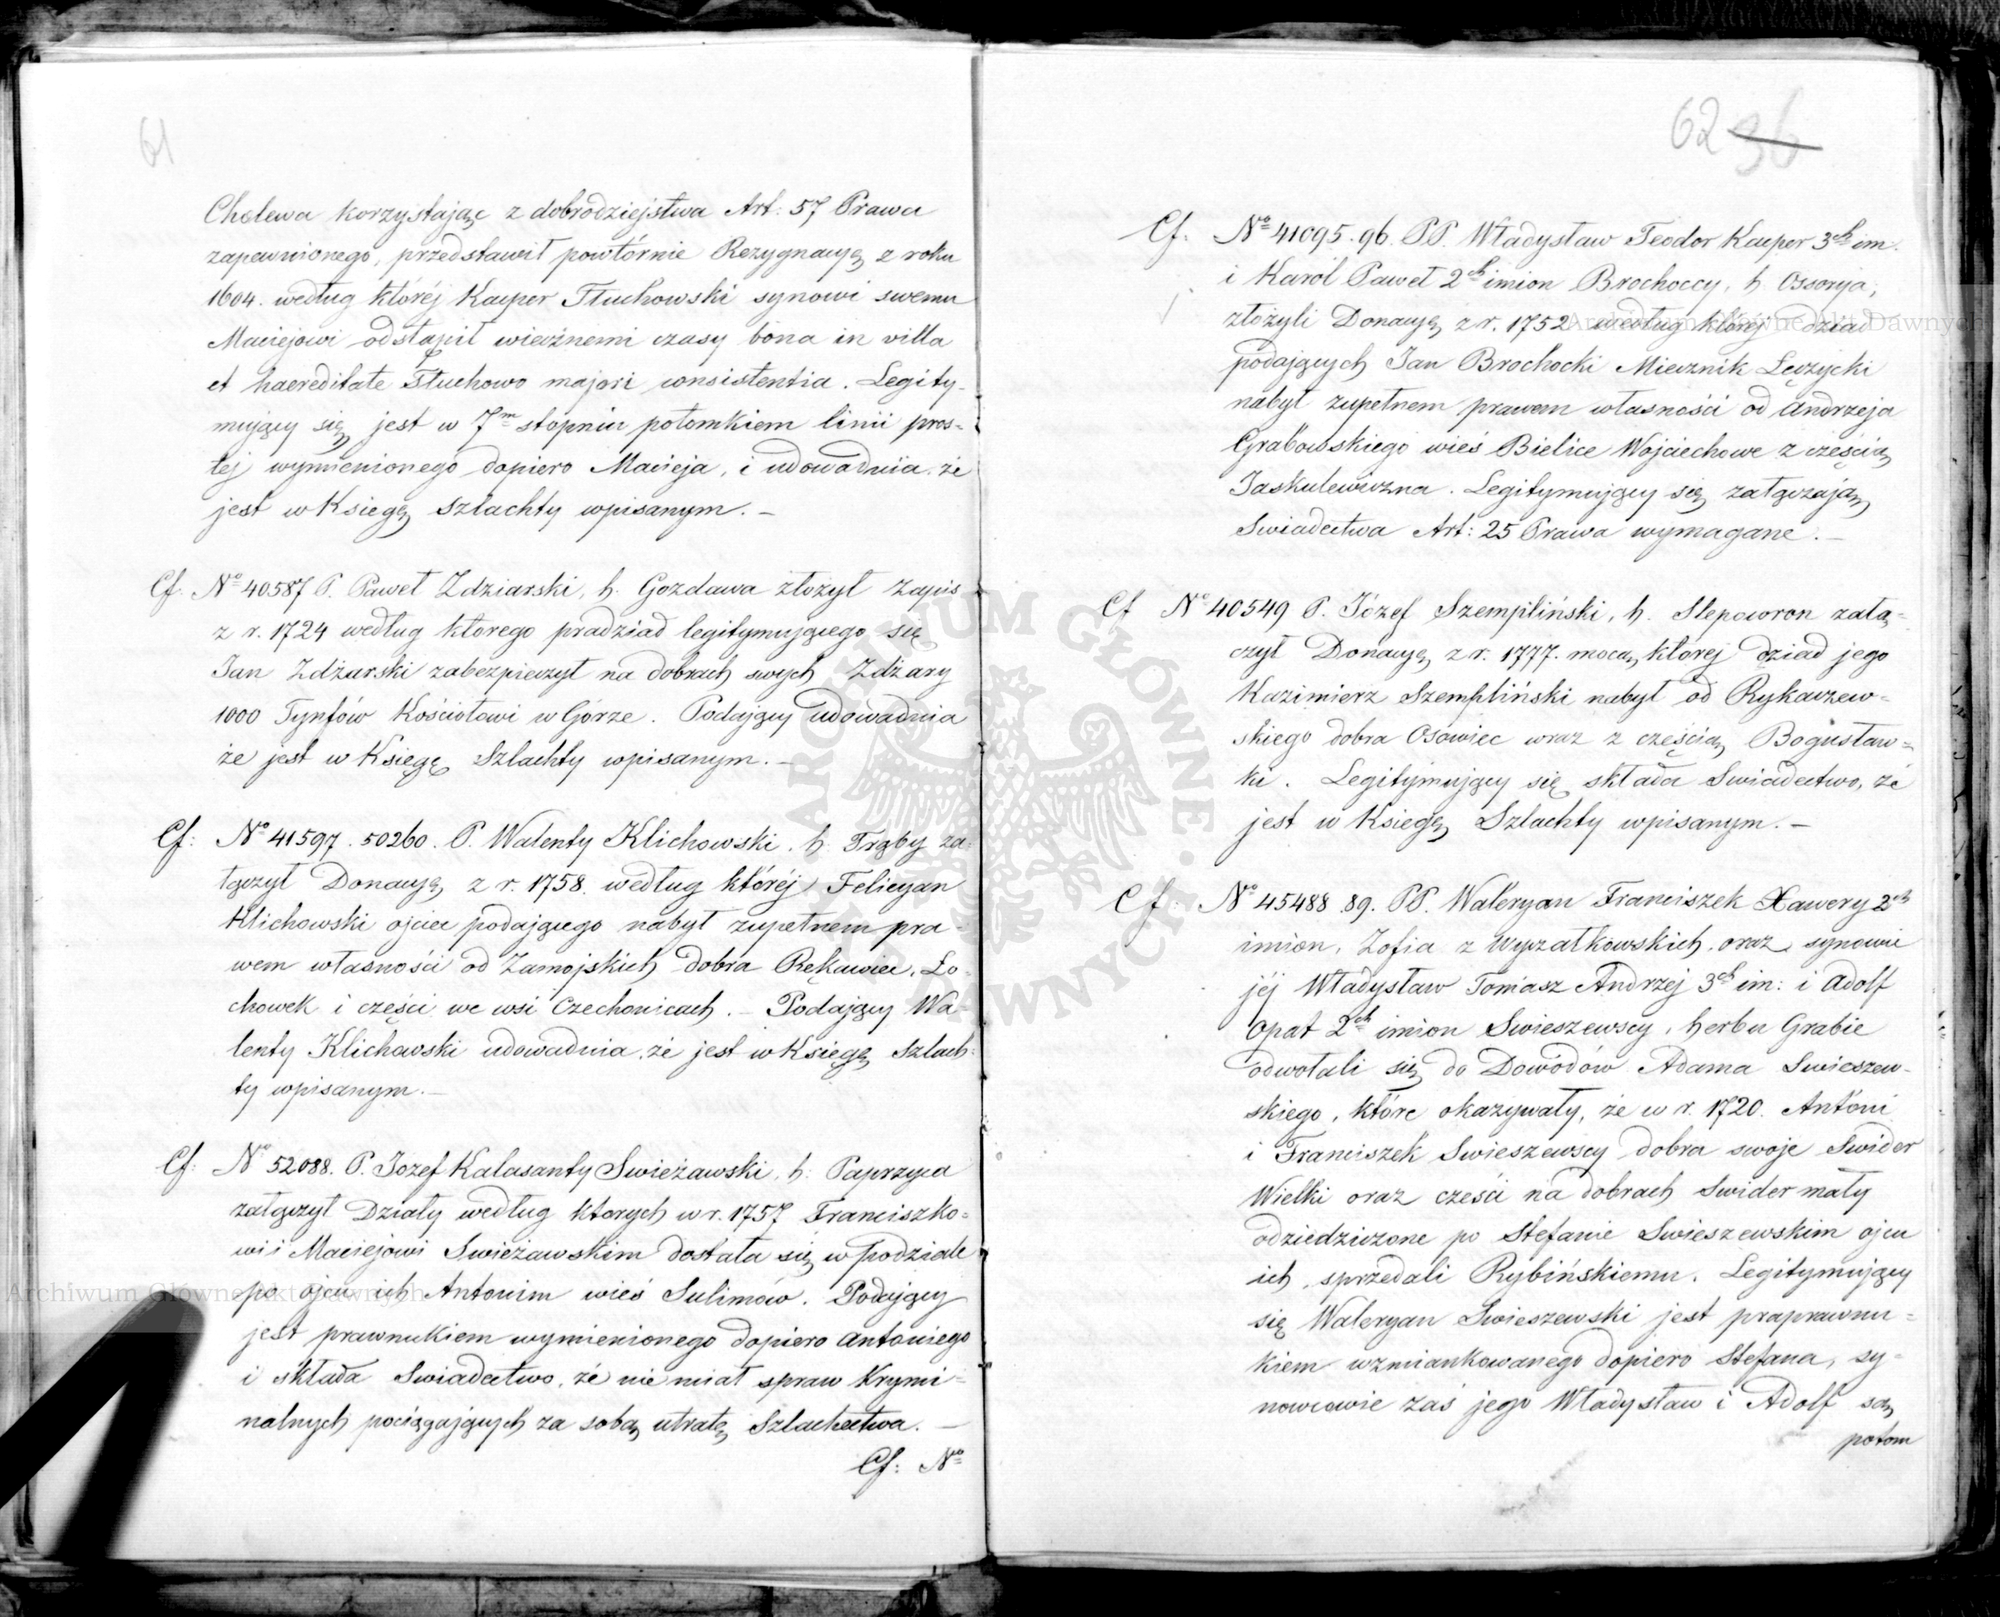 61
Cholewa korzystając z dobrodziejstwa Art: 57 Prawa
zapewnionego, przedstawił powtórnie Rezygnacyą z roku
1604. według któréj Kacper Tłuchowski synowi swemu
Maciejowi odstąpił wiecznemi czasy bona in villa
et haereditate Tłuchowo majori consistentia. Legity-
mujący się jest w 7m stopniu potomkiem linii pros-
tej wymienionego dopiero Macieja, i udowadnia że
jest w Księgę Szlachty wpisanym. –
Cf: No 40587 P. Paweł Zdziarski, h. Gozdawa złożył Zapis
z r. 1724 według ktorego pradziad legitymującego się
Jan Zdżarski zabezpieczył na dobrach swych Zdżary
1000 Tynfów Kościołowi w Górze. Podający udowadnia
że jest w Księgę Szlachty wpisanym. –
Cf: No 41597. 50260. P. Walenty Klichowski. h. Trąby za-
łączył Donacyą z r. 1758. według któréj Felicyan
Klichowski ojciec podającego nabył zupełnem pra-
wem własności od Zamojskich dobra Rękawiec, Ło-
chowek i części we wsi Czechonicach. – Podający Wa-
lenty Klichowski udowadnia, że jest w Księgę Szlach-
ty wpisanym. –
Cf: No 52088. P. Jozef Kalasanty Swieżawski, h. Paprzyca
załączył Działy według ktorych w r. 1757 Franciszko-
wi i Maciejowi Swieżawskim dostała się w podziale
po ojcu ich Antonim wieś Sulimów. Podający
jest prawnukiem wymienionego dopiero Antoniego
i składa Swiadectwo, że nie miał spraw Krymi-
nalnych pociągających za sobą utratę Szlachectwa. –
Cf: No
62 36
Cf: No 41095. 96. PP. Władysław Teodor Kacper 3ch im.
i Karól Paweł 2ch imion Brochoccy, h. Ossorya,
złożyli Donacyą z r. 1752 według któréj dziad
podających Jan Brochocki Miecznik Łęczycki
nabył zupełnem prawem własności od Andrzeja
Grabowskiego wieś Bielice Wojciechowe z częścią
Jaskulewczna. Legitymujący się załączają
Swiadectwa Art: 25 Prawa wymagane. –
Cf No 40549 P. Józef Szempliński, h. Slepowron załą-
czył Donacyą z r. 1777. mocą której dziad jego
Kazimierz Szempliński nabył od Rykaczew-
skiego dobra Osowiec wraz z częścią Bogusław-
ki. Legitymujący się składa Swiadectwo, że
jest w Księgę Szlachty wpisanym. –
Cf: No 45488. 89. PP. Waleryan Franciszek Xawery 2ch
imion, Zofia z Wyczałkowskich, oraz synowie
jéj Władysław Tomasz Andrzej 3ch im: i Adolf
Opat 2ch imion Swieszewscy, herbu Grabie
odwołali się do Dowodów Adama Swieszew-
skiego, które okazywały, że w r. 1720. Antoni
i Franciszek Swieszewscy dobra swoje Swider
Wielki oraz cześci na dobrach Swider mały
odziedziczone po Stefanie Swieszewskim ojcu
ich, sprzedali Rybińskiemu. Legitymujący
się Waleryan Swieszewski jest praprawnu-
kiem wzmiankowanego dopiero Stefana, sy-
nowcowie zaś jego Władysław i Adolf są
potom
Archiwum Główne Akt Dawnych
Archiwum Główne Akt Dawnych
ARCHIWUM GŁÓWNE AKT DAWNYCH